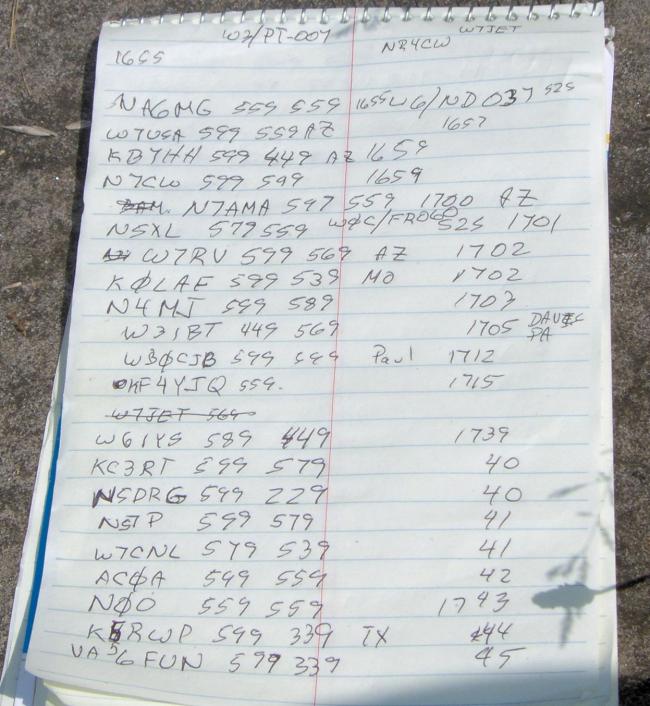 W3/PT-007 NR4CW W7JET
1655
NA6MG 559 559 1655 W6/ND037 525
W7USA 599 559 AZ 1657
KB7HH 599 449 AZ 1659
N7CW 599 599 1659
N7AMA 597 559 1700 AZ
N5XL 579 559 WØC/FR060 525 1701
W7RV 599 569 AZ 1702
KØLAF 599 539 MO 1702
N4MJ 599 589 1703
W31BT 449 569 1705 DAVE PA
WBØCJB 599 599 Paul 1712
KF4YJQ 559. 1715
W7JET 569
W61YS 589 449 1739
KC3RT 599 579 40
N5DRG 599 229 40
NSTP 599 579 41
W7CNL 579 539 41
ACØA 599 559 42
NØO 559 559 1743
K5RWP 599 339 TX 44
VA6FUN 599 339 45